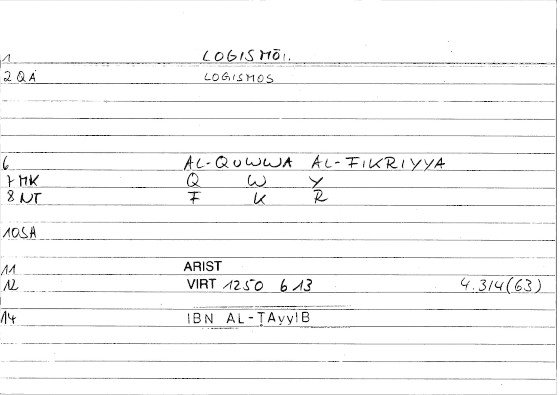 1 LOGISMŌI.
2 QA LOGISMOS
6 AL-QUWWA AL-FIKRIYYA
7 MK Q W Y
8 NT F K R
10 SA
11 ARIST
12 VIRT 1250 b 13 4.314(63)
14 IBN AL-ṬAYYIB